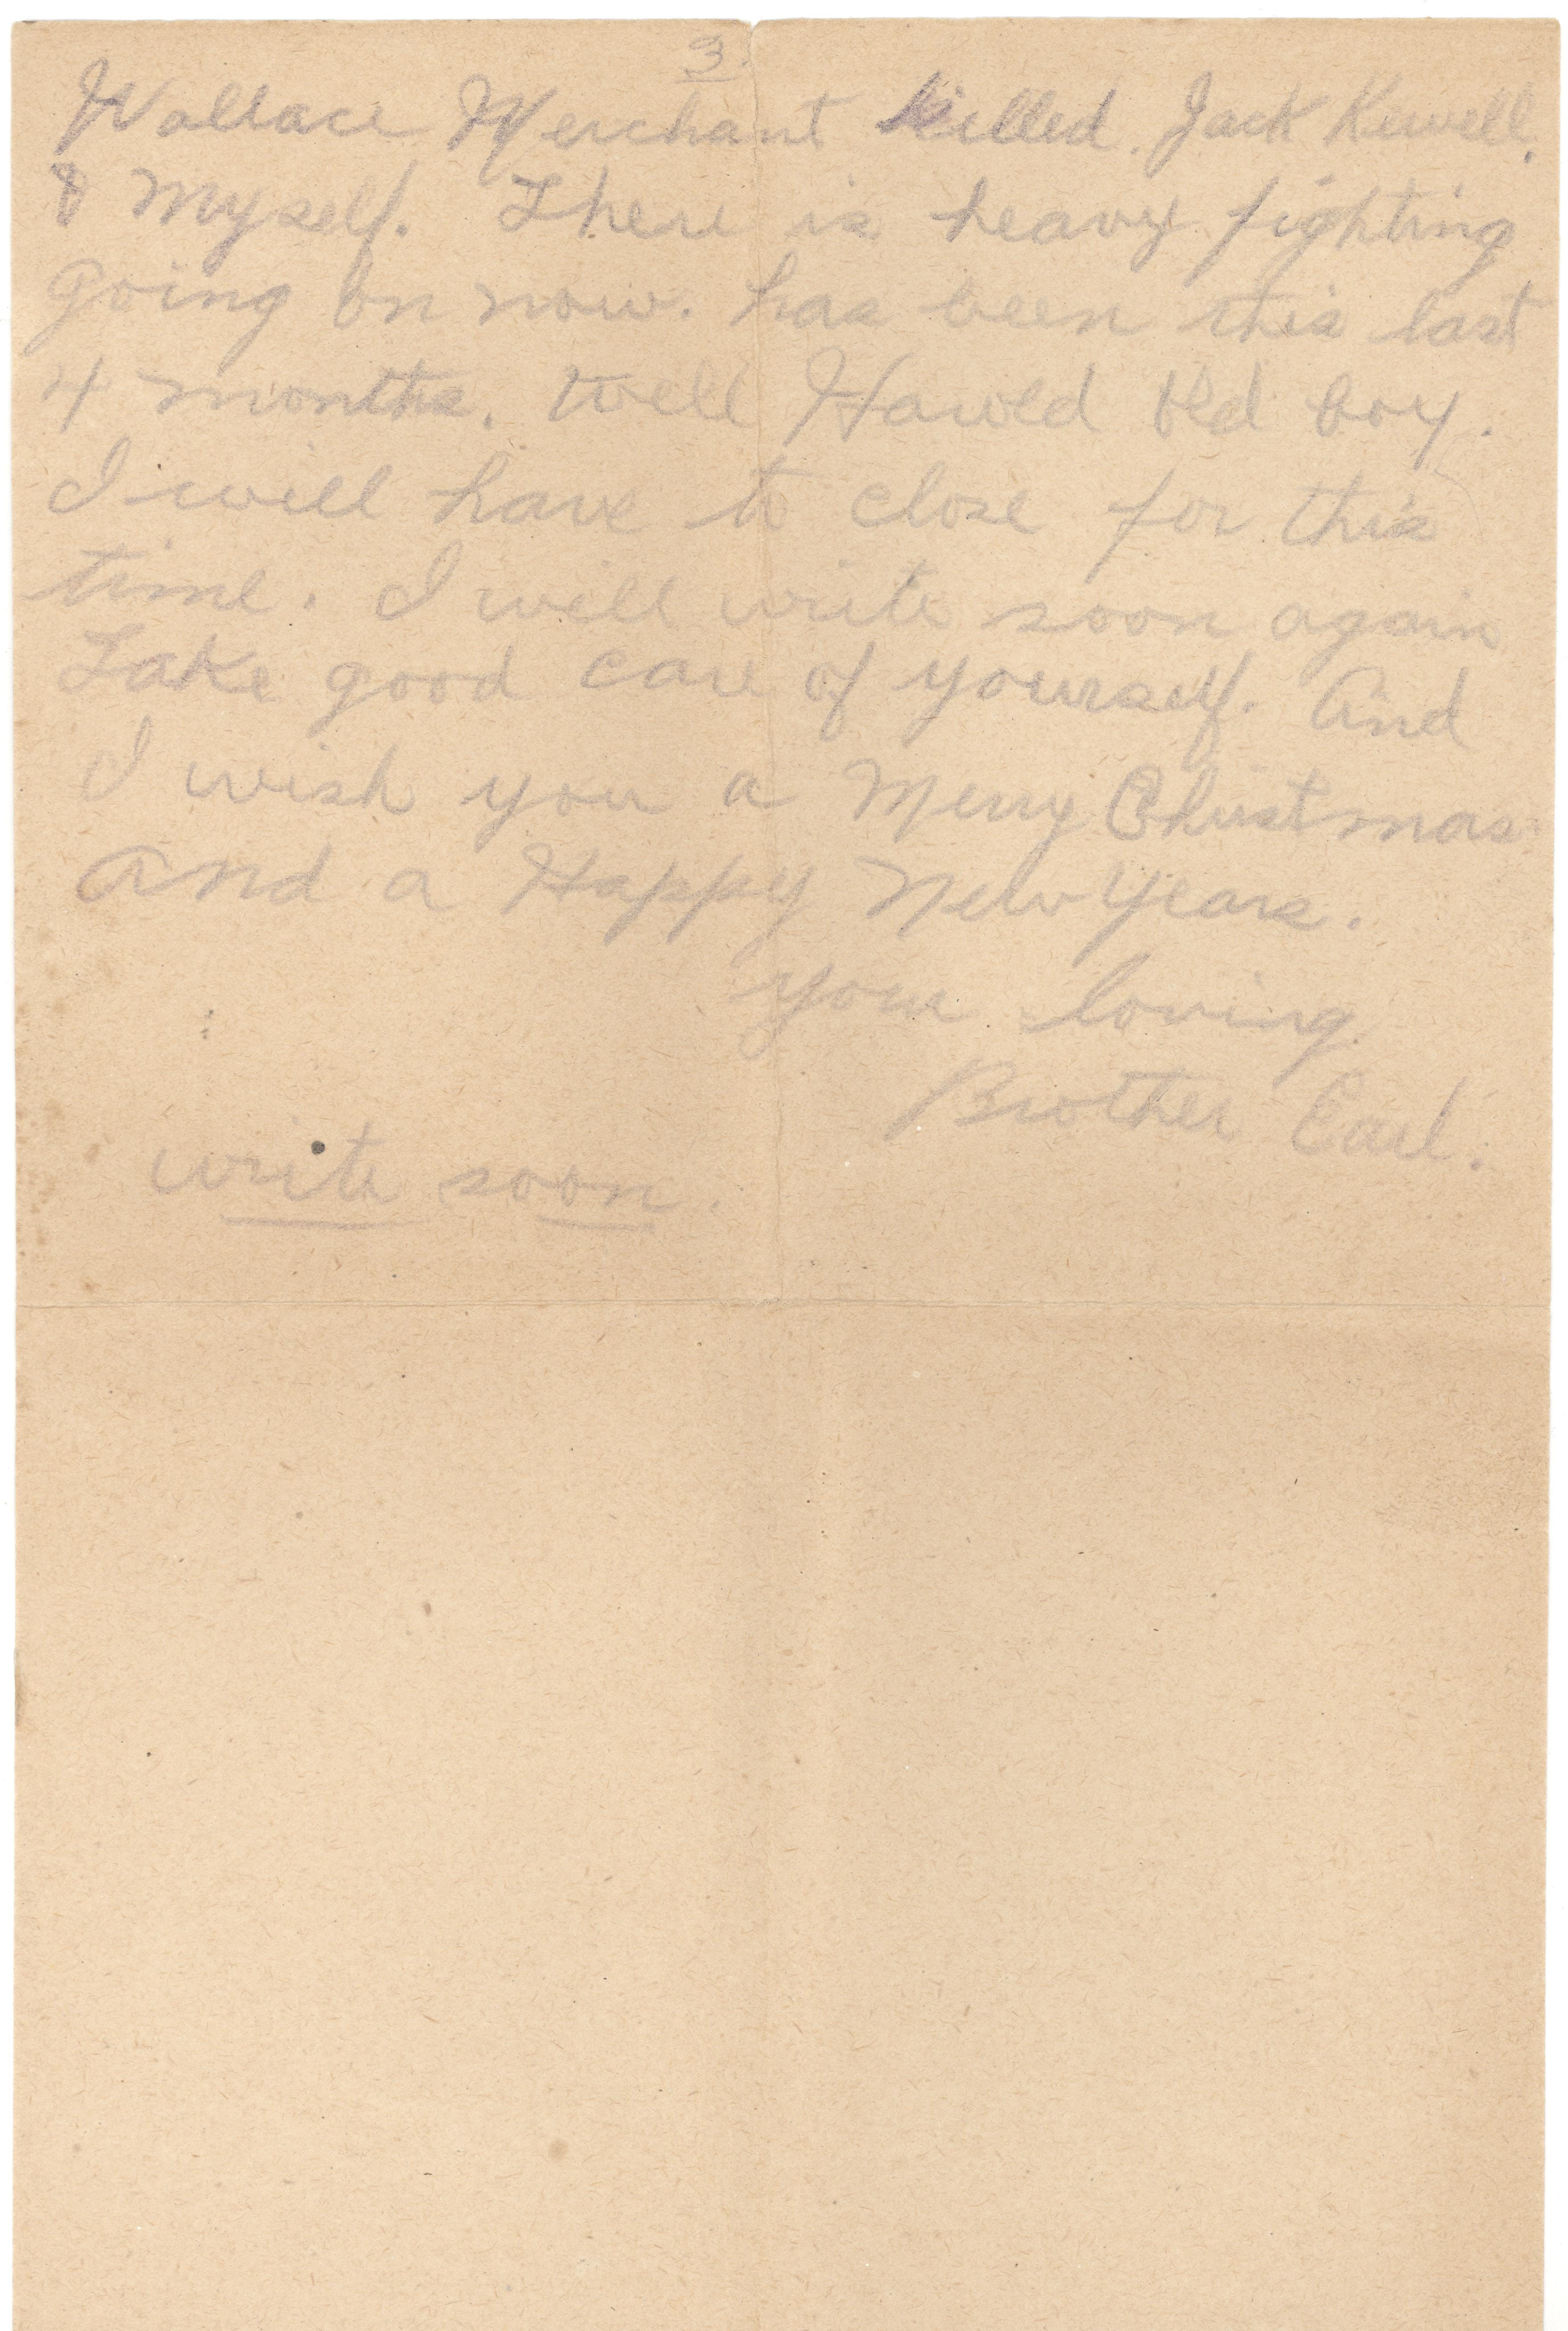 3.
Wallace Merchant killed. Jack Kewell.
& Myself. There is heavy fighting
going on now. has been this last
4 months. Well Harold old boy.
I will have to close for this
time. I will write soon again
Take good care of yourself. And
I wish you a Merry Christmas
And a Happy New Years.
your loving
Brother Earl.
write soon.